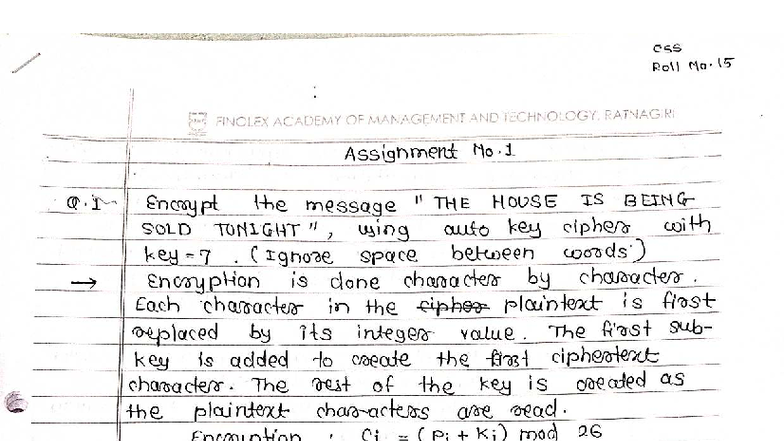 CSS
Roll No. 15
FINOLEX ACADEMY OF MANAGEMENT AND TECHNOLOGY, RATNAGIRI
Assignment No.1
Q.1 Encrypt the message " THE HOUSE IS BEING
SOLD TONIGHT ", using auto key cipher with
key = 7 . (Ignore space between words)
→ Encryption is done character by character.
Each character in the cipher plaintext is first
replaced by its integer value. The first sub-
key is added to create the first ciphertext
character. The rest of the key is created as
the plaintext characters are read.
Encryption : Ci = (Pi + Ki) mod 26